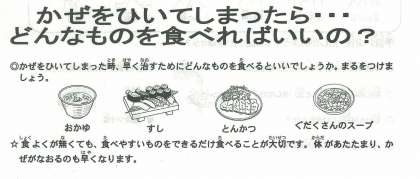 かぜをひいてしまったら・・・
どんなものを食べればいいの？
◎かぜをひいてしまった時、早く治すためにどんなものを食べるといいでしょうか。まるをつけま
しょう。
おかゆ すし とんかつ ぐだくさんのスープ
☆食よくが無くても、食べやすいものをできるだけ食べることが大切です。体があたたまり、か
ぜがなおるのも早くなります。